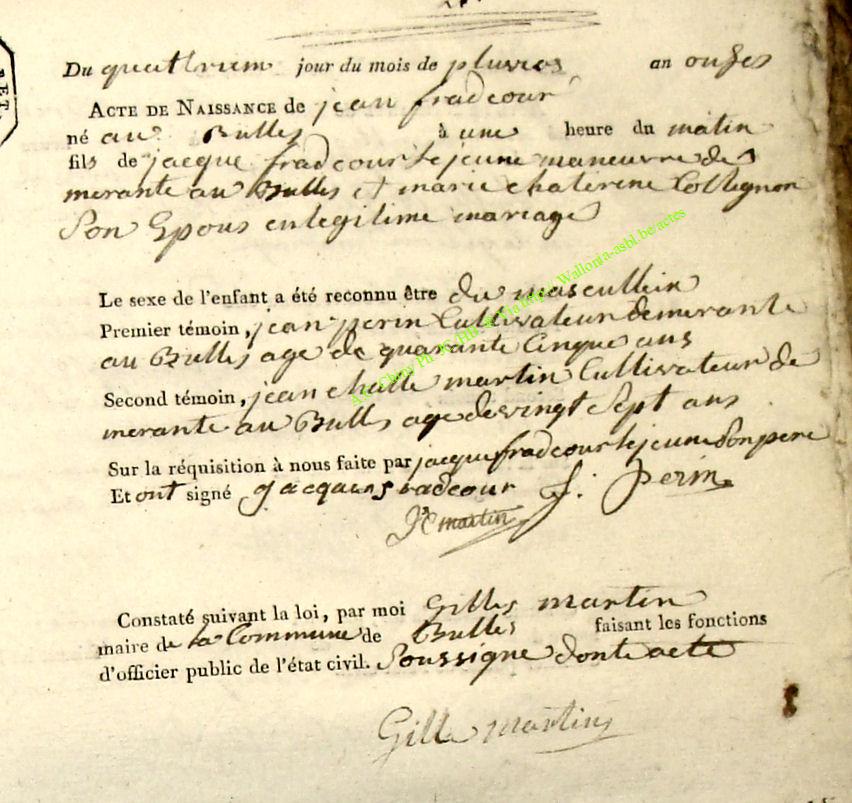 Du quatriem jour du mois de pluvios an onzes
ACTE DE NAISSANCE de jean fradcour
né au Bulles à une heure du matin
fils de jacque fradcour le jeune maneuvre de
merante au Bulles et marie chaterine Collignon
Son Epous en legitime mariage
Le sexe de l'enfant a été reconnu être du mascullein
Premier témoin, jean perin Cultivateur demerante
au Bulles age de quarante Cinque ans
Second témoin, jean challe martin Cultivateur de
merante au Bulles age de vingt Sept ans
Sur la réquisition à nous faite par jacque fradcour le jeune Son pere
Et ont signé jacque fradcour J. Perin
martin
Constaté suivant la loi, par moi Gilles martin
maire de la Commune de Bulles faisant les fonctions
d'officier public de l'état civil. Soussigne dont acte
Gille martin